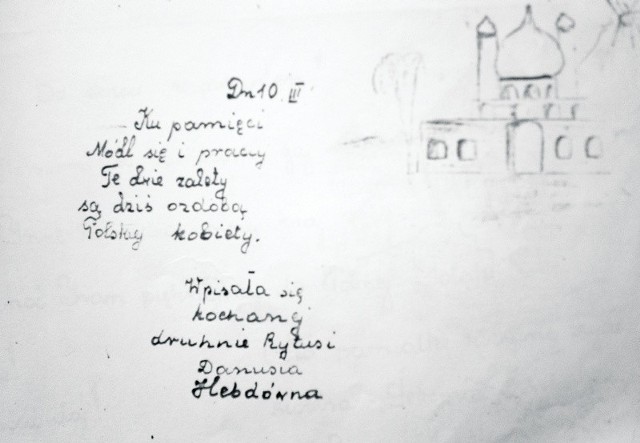 Dn 10. III
Ku pamięci
Módl się i pracuj
Te dwie zalety
są dziś ozdobą
Polskiej kobiety.
Wpisała się
kochanej
druhnie Rytusi
Danusia
Hebdówna